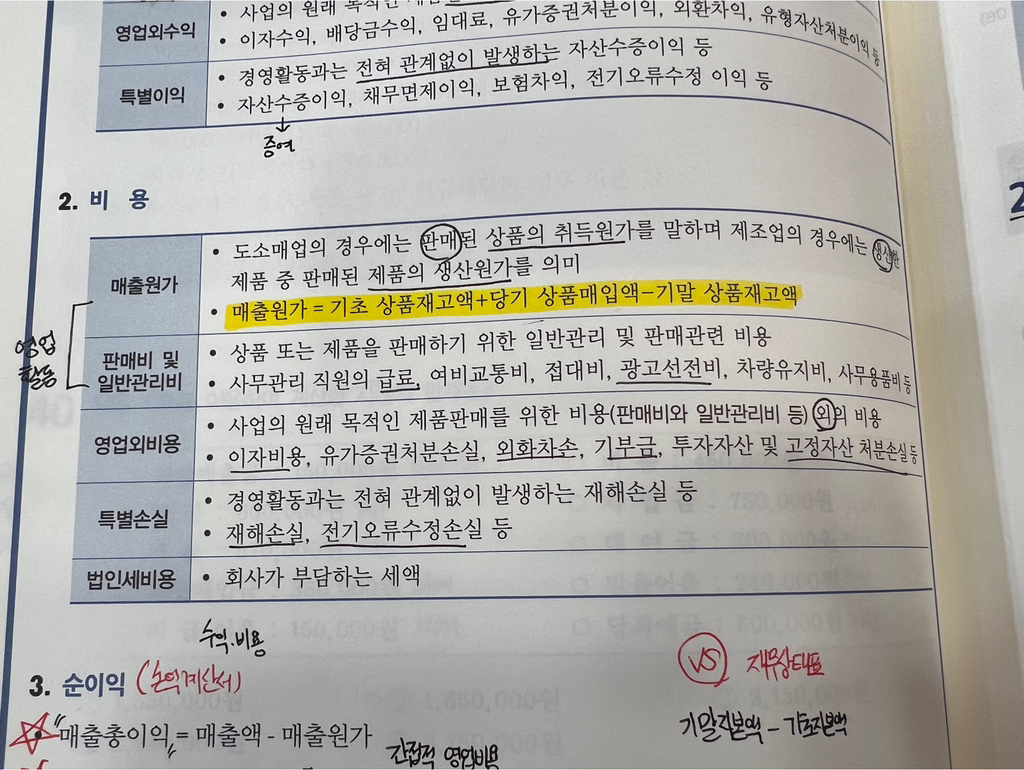 사업의 원래 목적인
영업외수익
• 이자수익, 배당금수익, 임대료, 유가증권처분이익, 외환차익, 유형자산처분이익 등
특별이익
• 경영활동과는 전혀 관계없이 발생하는 자산수증이익 등
• 자산수증이익, 채무면제이익, 보험차익, 전기오류수정 이익 등
↓
증여
2. 비 용
매출원가
• 도소매업의 경우에는 판매된 상품의 취득원가를 말하며 제조업의 경우에는 생산한
제품 중 판매된 제품의 생산원가를 의미
• 매출원가 = 기초 상품재고액+당기 상품매입액−기말 상품재고액
영업
활동
판매비 및
일반관리비
• 상품 또는 제품을 판매하기 위한 일반관리 및 판매관련 비용
• 사무관리 직원의 급료, 여비교통비, 접대비, 광고선전비, 차량유지비, 사무용품비 등
영업외비용
• 사업의 원래 목적인 제품판매를 위한 비용(판매비와 일반관리비 등) 외의 비용
• 이자비용, 유가증권처분손실, 외화차손, 기부금, 투자자산 및 고정자산 처분손실 등
특별손실
• 경영활동과는 전혀 관계없이 발생하는 재해손실 등
• 재해손실, 전기오류수정손실 등
법인세비용
• 회사가 부담하는 세액
수익·비용
3. 순이익 (손익계산서)
VS 재무상태표
• "매출총이익" = 매출액 - 매출원가
기말자본액 - 기초자본액
간접적 영업비용